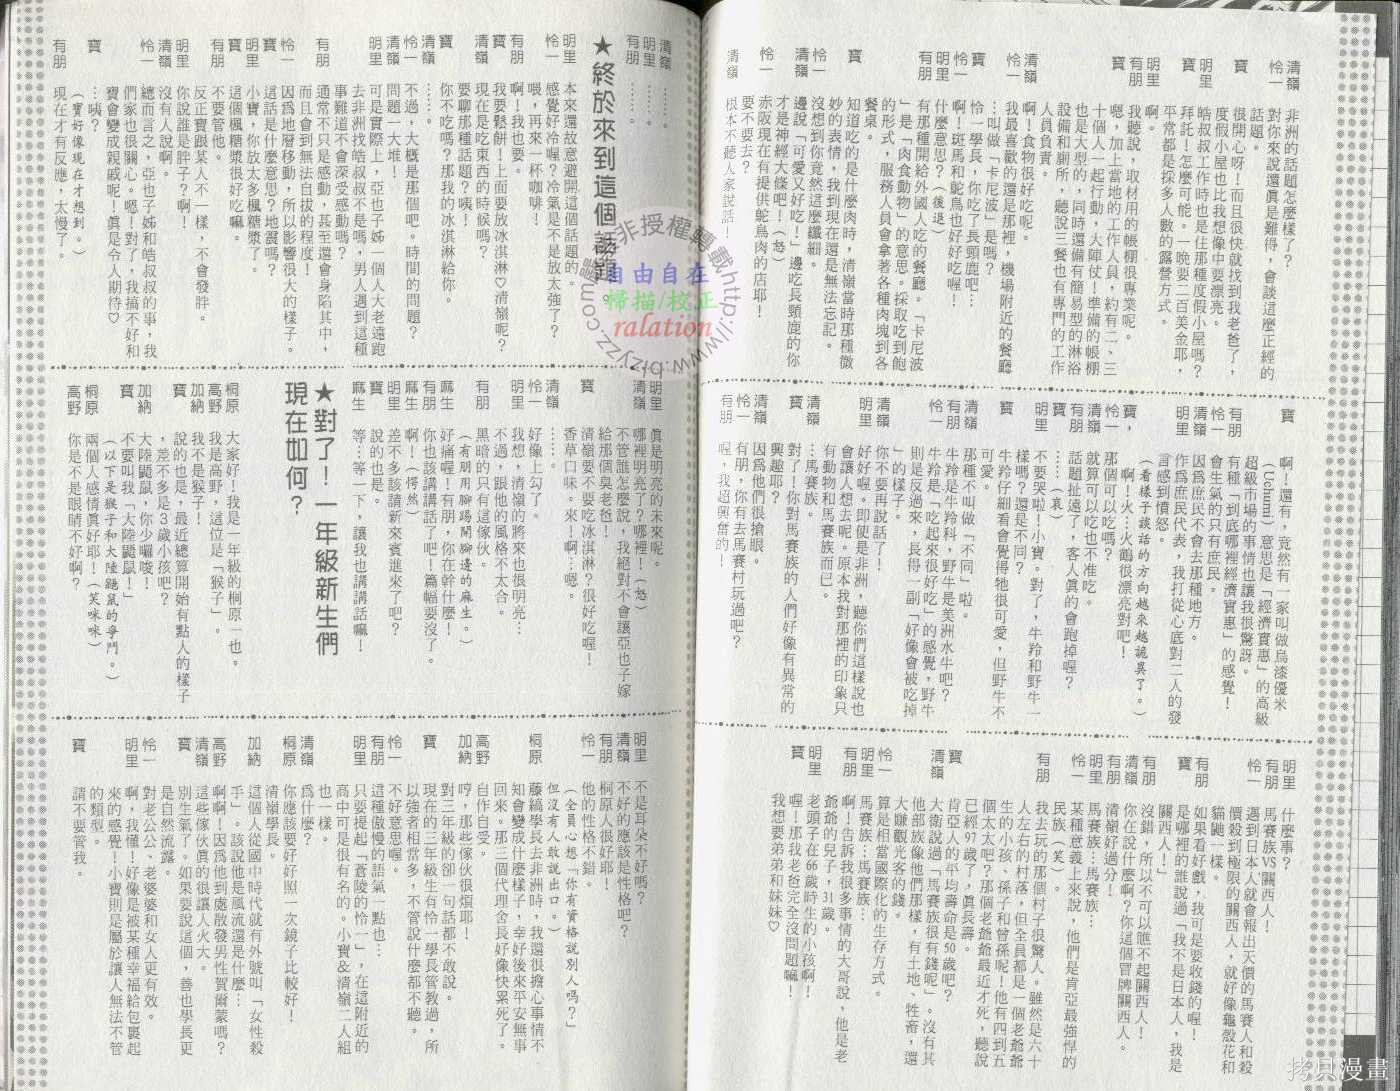 清嶺　非洲的話題怎麼樣了？
怜一　對你來說還真是難得，會談這麼正經的
話題。
寶　很開心呀！而且很快就找到我老爸了，
度假小屋也比我想像中要漂亮。
明里　皓叔叔工作時也是住那種度假小屋嗎？
寶　拜託！怎麼可能。一晚要二百美金耶，
平常都是採多人數的露營方式。
明里　啊。
有朋　我聽說，取材用的帳棚很專業呢。
寶　嗯，加上當地的工作人員，約有二、三
十個人一起行動，大陣仗！準備的帳棚
也是大型的，同時還備有簡易型的淋浴
設備和廁所，聽說三餐也有專門的工作
人員負責。
清嶺　啊！食物很好吃呢。
怜一　我最喜歡的還是那裡，機場附近的餐廳
…叫做「卡尼波」是嗎？
寶　怜一學長，你吃了長頸鹿吧…
怜一　啊！斑馬和鴕鳥也好好吃喔！
明里　什麼意思？（後退）
有朋　有那種開給外國人吃的餐廳。「卡尼波
」是「肉食動物」的意思。採取吃到飽
的形式，服務人員會拿著各種肉塊到各
餐桌。
寶　知道吃的是什麼肉時，清嶺當時那種微
妙的表情，我到現在還是無法忘記。
怜一　沒想到你竟然這麼纖細。
清嶺　邊說「可愛又好吃！」邊吃長頸鹿的你
才是神經大條吧！（怒）
怜一　赤阪現在有提供鴕鳥肉的店耶！
要不要去？
清嶺　根本不聽人家說話！
寶　啊！還有，竟然有一家叫做烏漆優米
（Uchumi）意思是「經濟實惠」的高級
超級市場的事情也讓我很驚訝。
有朋　有種「到底哪裡經濟實惠」的感覺！
怜一　會生氣的只有庶民。
清嶺　因為庶民不會去那種地方。
明里　作為庶民代表，我打從心底對二人的發
言感到憤怒。
（看樣子談話的方向越來越詭異了。）
寶，　啊！火…火鶴很漂亮對吧！
怜一　那個可以吃嗎？
清嶺　就算可以吃也不准吃。
有朋　話題扯遠了，客人真的會跑掉喔？
寶　……（哀）
明里　不要哭啦！小寶。對了，牛羚和野牛一
樣嗎？還是不同？
寶　牛羚仔細看會覺得牠很可愛，但野牛不
可愛。
清嶺　那種不叫做「不同」啦。
有朋　牛羚是牛羚科，野牛是美洲水牛吧？
怜一　牛羚是「吃起來很好吃」的感覺，野牛
則是反過來，長得一副「好像會被吃掉
」的樣子。
清嶺　你不要再說話了！
明里　好好喔。即便是非洲，聽你們這樣說也
會讓人想去呢。原本我對那裡的印象只
有動物和馬賽族而已。
清嶺　…馬賽族。
寶　對了！你對馬賽族的人們好像有異常的
興趣耶？
清嶺　因為他們很搶眼。
怜一　有朋，你有去馬賽村玩過吧？
有朋　喔，我超興奮的！
明里　什麼事？
有朋　馬賽族VS關西人！
怜一　遇到日本人就會報出天價的馬賽人和殺
價殺到極限的關西人，就好像龜殼花和
貓鼬一樣。
有朋　如果看好戲，我可是要收錢的喔！
寶　是哪裡的誰說過「我不是日本人，我是
關西人！」
有朋　沒錯，所以不可以瞧不起關西人！
清嶺　你在說什麼啊？你這個冒牌關西人。
有朋　清嶺好過分！
明里　馬賽族…馬賽族…
怜一　某種意義上來說，他們是肯亞最強悍的
民族（笑）。
有朋　我去玩的那個村子很驚人。雖然是六十
人左右的村落，但全員都是一個老爺爺
生的小孩、孫子和曾孫呢！他有四到五
個太太吧？那個老爺爺最近才死，聽說
已經97歲了，真長壽。
寶　肯亞人的平均壽命是50歲吧？
清嶺　大衛說過「馬賽族很有錢呢」。沒有其
他部族像他們那樣，有土地、牲畜，還
大賺觀光客的錢。
怜一　算是相當國際化的生存方式。
明里　馬賽族…馬賽族…
有朋　啊！告訴我很多事情的大哥說，他是老
爺爺的兒子，31歲。
明里　老頭子在66歲時生的小孩啊！
寶　喔！那我老爸完全沒問題嘛！
我想要弟弟和妹妹♡
清嶺　……。
明里　……。
有朋　……。
★終於來到這個話題。
明里　本來還故意避開這個話題的。
怜一　感覺好冷喔？冷氣是不是放太強了？
喂，再來一杯咖啡！
有朋　啊！我也要。
寶　我要鬆餅！上面要放冰淇淋♡清嶺呢？
清嶺　現在是吃東西的時候嗎？
要聊那種話題？咦！
寶　你不吃嗎？那我的冰淇淋給你。
清嶺　……。
怜一　不過，大概是那個吧。時間的問題？
清嶺　問題一大堆！
明里　可是實際上，亞也子姊一個人大老遠跑
去非洲找皓叔叔不是嗎，男人遇到這種
事難道不會深受感動嗎？
有朋　通常不只是感動，甚至還會身陷其中，
而且會到無法自拔的程度！
怜一　因為地層移動，所以影響很大的樣子。
寶　這話是什麼意思？地震嗎？
明里　小寶，你放太多楓糖漿了。
寶　這個楓糖漿很好吃嘛。
有朋　不要管他。
反正寶跟某人不一樣，不會發胖。
明里　你說誰是胖子？啊！
清嶺　沒有人說啊。
怜一　總而言之，亞也子姊和皓叔叔的事，我
們家也很關心。嗯！對了，我搞不好和
寶會變成親戚呢！真是令人期待♡
寶　…咦？
（寶好像現在才想到。）
有朋　現在才有反應，太慢了。
明里　真是明亮的未來呢。
清嶺　哪裡明亮了？哪裡！（怒）
不管誰怎麼說，我絕對不會讓亞也子嫁
給那個臭老爸！
寶　清嶺要不要吃冰淇淋？很好吃喔！
香草口味。來！啊…嗯。
清嶺　……。
怜一　好像上勾了。
明里　我想，清嶺的將來也很明亮…
不過，跟他的風格不太合。
有朋　黑暗的只有這傢伙。
（有朋用腳踢開腳邊的麻生。）
麻生　好痛喔！有朋，你在幹什麼！
有朋　你也該講講話了吧！篇幅要沒了。
麻生　啊！（愕然）
明里　差不多該請新來賓進來了吧？
寶　說的也是。
麻生　等…等一下，讓我也講講話嘛！
★對了！一年級新生們
現在如何？
桐原　大家好！我是一年級的桐原一也。
高野　我是高野，這位是「猴子」。
加納　我不是猴子！
寶　說的也是，最近總算開始有點人的樣子
，差不多是3歲小孩吧？
加納　大陸鼴鼠，你少囉唆！
寶　不要叫我「大陸鼴鼠」！
（以下是猴子和大陸鼴鼠的爭鬥。）
桐原　兩個人感情真好耶！（笑咪咪）
高野　你是不是眼睛不好啊？
明里　不是耳朵不好嗎？
清嶺　不好的應該是性格吧？
有朋　桐原人很好耶！
怜一　他的性格不錯。
（全員心想「你有資格說別人嗎？」
但沒有人敢說出口。）
桐原　藤縞學長去非洲時，我還很擔心事情不
知會變成什麼樣子，幸好後來平安無事
回來。那三個代理舍長好像快累死了。
高野　自作自受。
加納　哼，那些傢伙很煩耶！
對三年級的卻一句話都不敢說。
寶　現在的三年級生有怜一學長管教過，所
以強者相當多，不管說什麼都不聽。
怜一　不好意思喔。
有朋　這種傲慢的語氣一點也…
明里　只要提起「蒼陵的怜一」，在這附近的
高中可是很有名的。小寶&清嶺二人組
也一樣。
清嶺　為什麼？
桐原　你應該要好好照一次鏡子比較好！
清嶺學長。
加納　這個人從國中時代就有外號叫「女性殺
手」。該說他是風流還是什麼…
高野　啊啊！因為他到處散發男性賀爾蒙嗎？
清嶺　這些傢伙真的很讓人火大。
寶　別生氣了。如果要說這個，善也學長更
是自然流露。
怜一　對老公公、老婆婆和女人更有效。
明里　啊，我懂！好像是被某種幸福給包裹起
來的感覺！小寶則是屬於讓人無法不管
的類型。
寶　請不要管我。
非授權轉載
http://www.hzyzz.com
自由自在
掃描/校正
ralation
拷貝漫畫